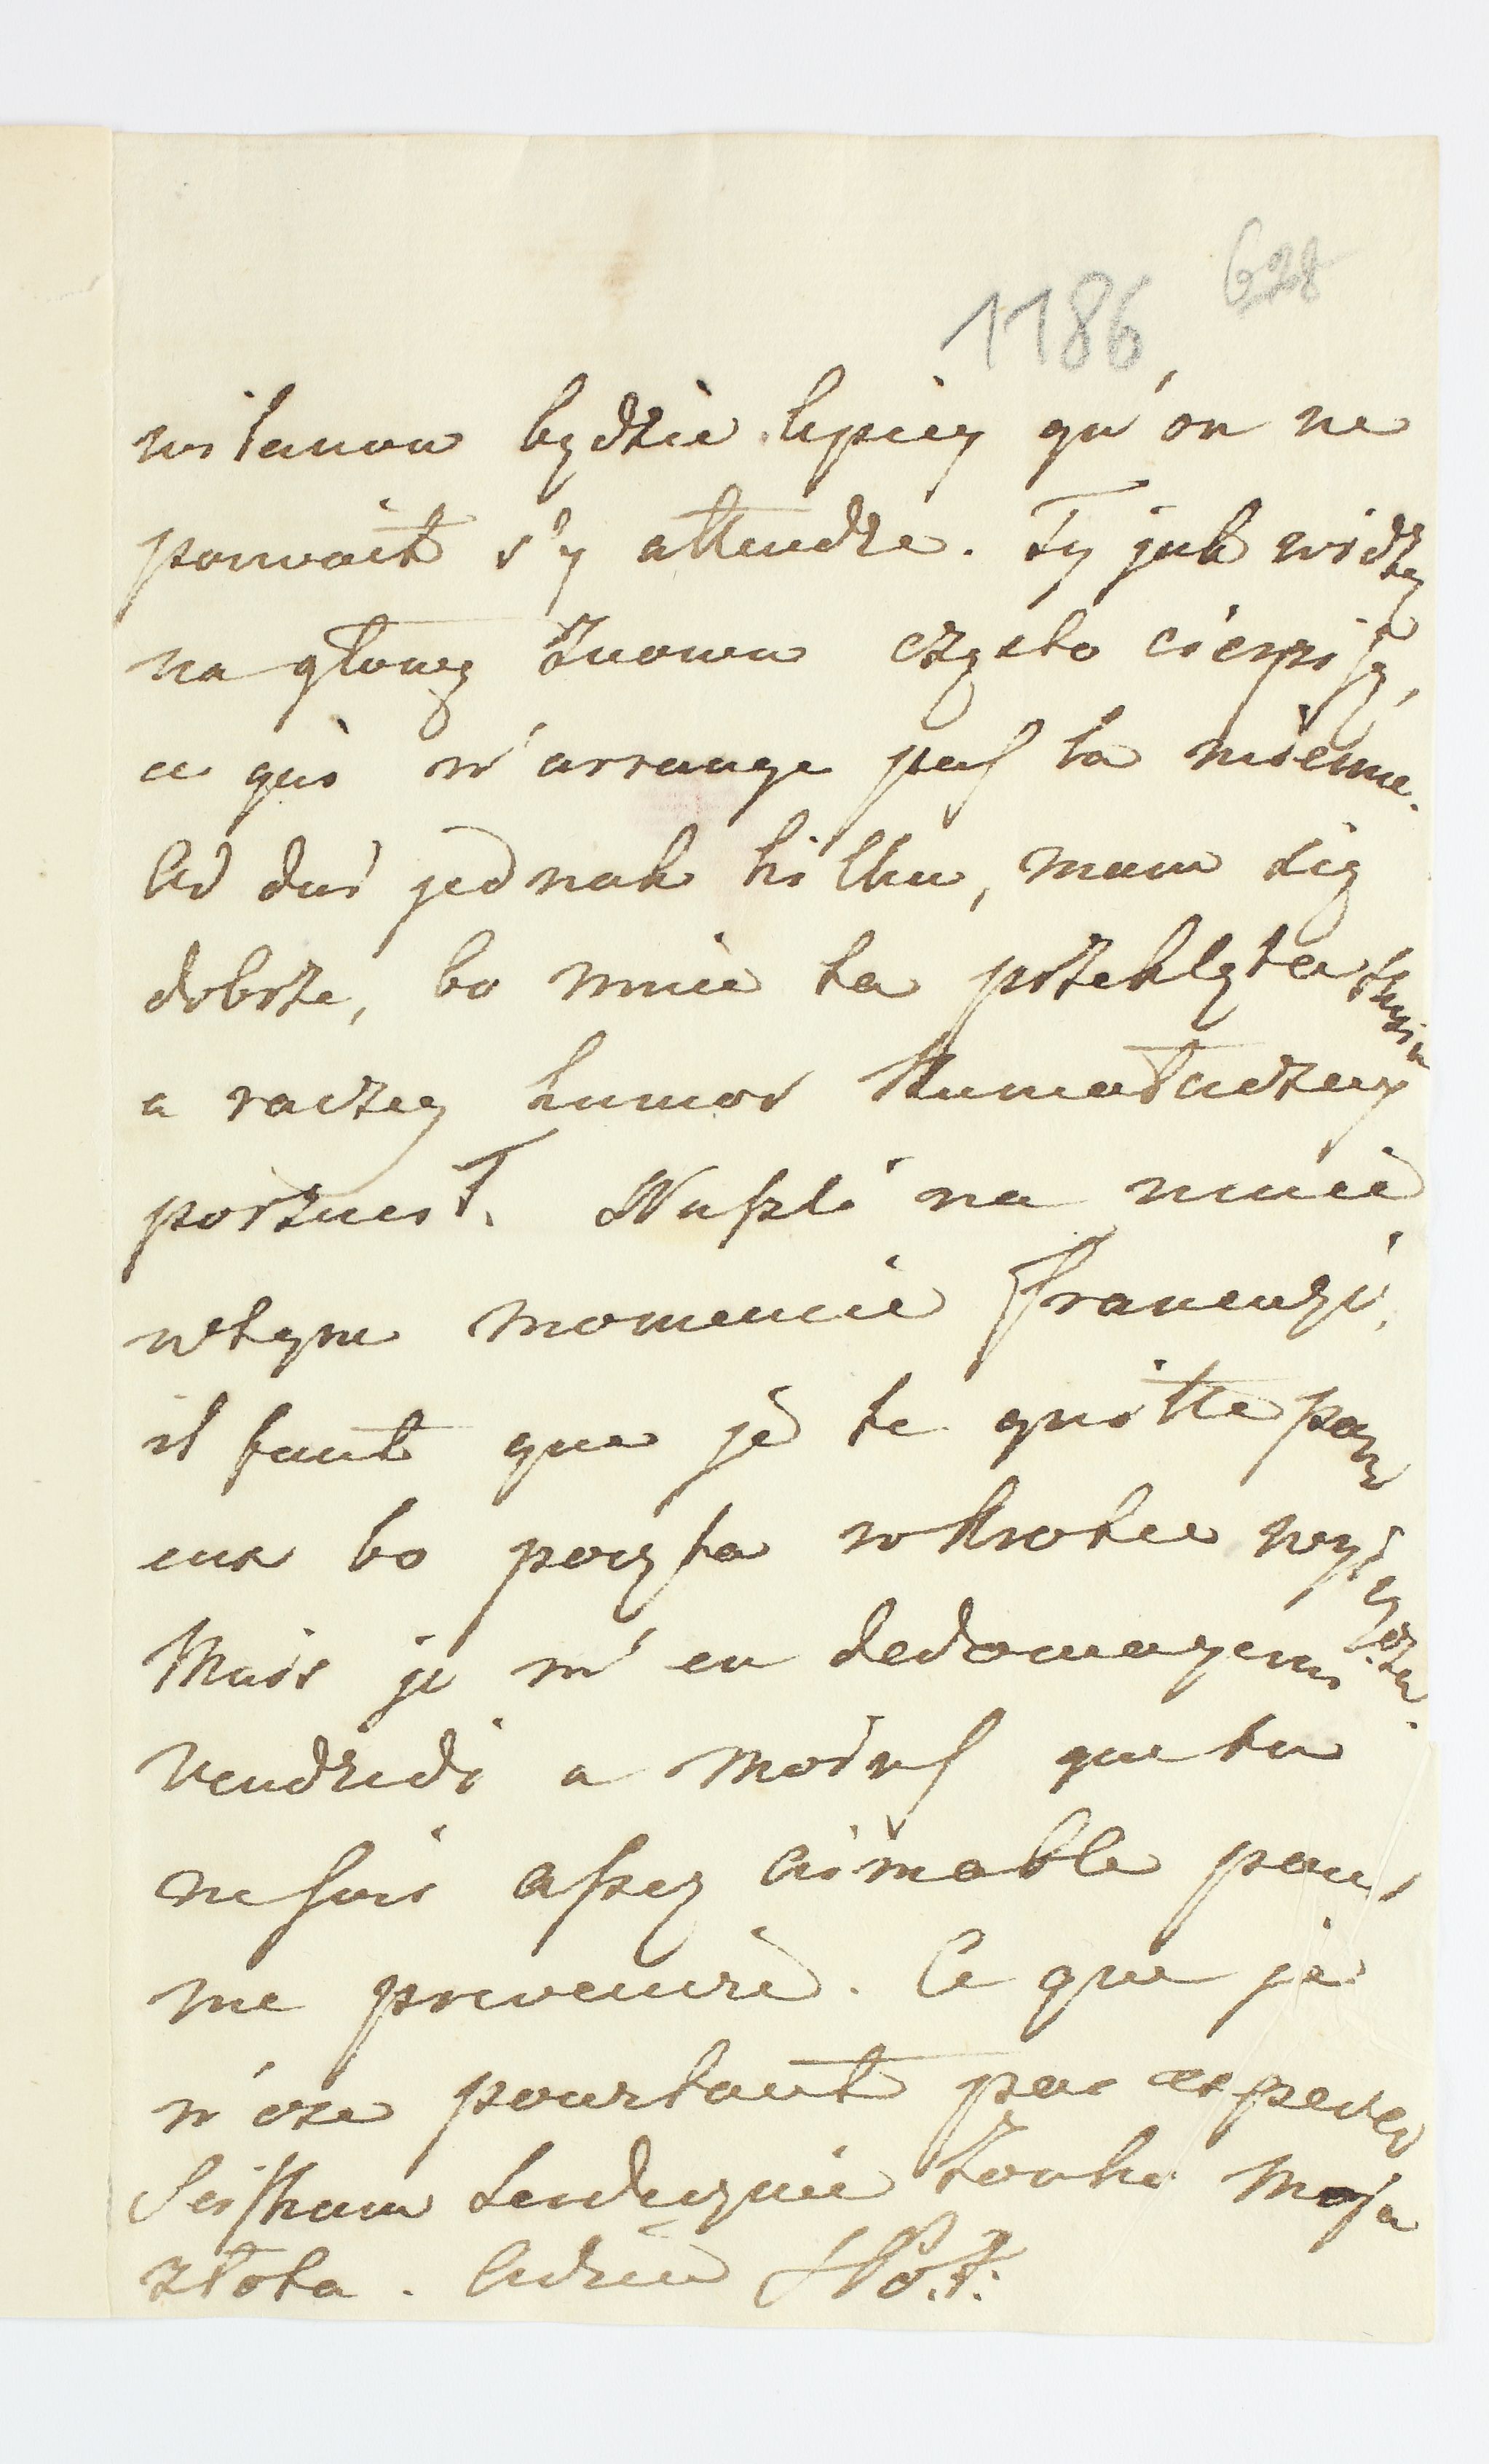 1186 628
wilanow będzie lepiey qu'on ne
pouvait s'y attendre. Ty jak widzę
na głowę znowu często cierpisz,
ce qui n'arrange pas la mienne.
Od dni jednak kilku, mam się
dobrze, bo mnie ta przeklęta
a raczey humor
porzucił. Naszli na mnie
wtym momencie francuzi,
il faut que je te quitte pour
eux bo poczta wkrotce wychodzi.
Mais je m'en dedomagerai
Vendredi a moins que tu
ne sois assez aimable pour
me prevenire. Ce que je
n'ose pourtant pas esperer
Sciskam serdecznie Zonko Moja
złota. Adieu St: P.